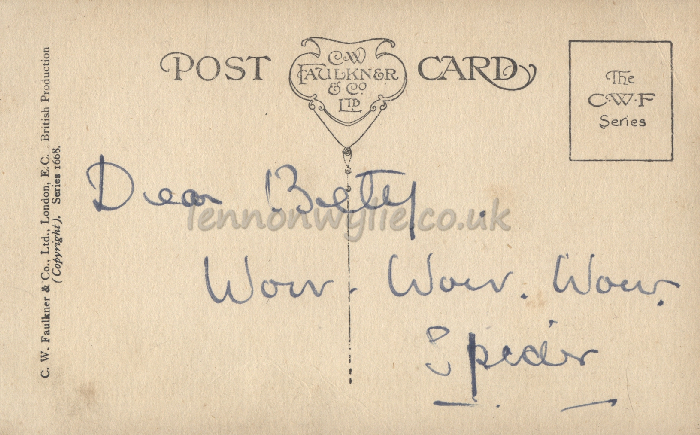 POST CARD
C.W
FAULKNER
& Co.
LTD
The
C.W.F
Series
C. W. Faulkner & Co., Ltd., London, E.C. British Production
(Copyright). Series 1608.
Dear Betty.
lennonwylie.co.uk
Wow. Wow. Wow.
Spider